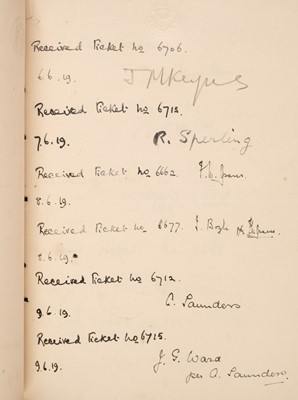 Received Ticket No 6706.
6.6.19. J M Keynes
Received Ticket No 6711.
7.6.19. R. Sperling
Received Ticket No 6662.
8.6.19.
Received Ticket No 6677.
8.6.19.
Received Ticket No 6712.
9.6.19. C. Saunders
Received Ticket No 6715.
9.6.19. J. G. Ward
per A. Saunders.